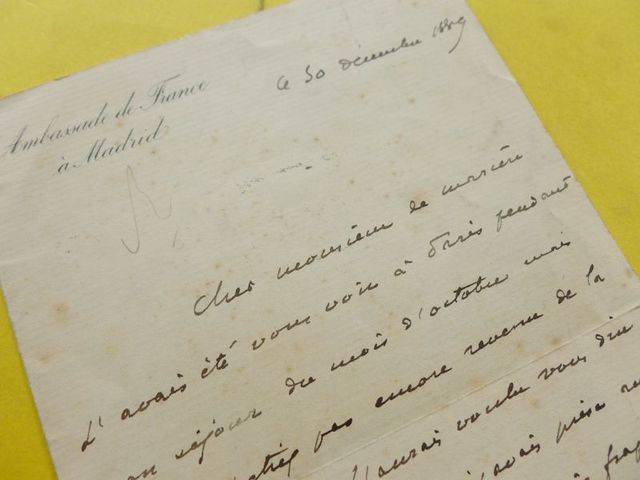 Ambassade de France
à Madrid
Ce 30 décembre 1889
Cher monsieur de
J'avais été vous voir à Paris pendant
mon séjour du mois d'octobre mais
pas encore revenu de la
J'aurais voulu vous dire
j'avais